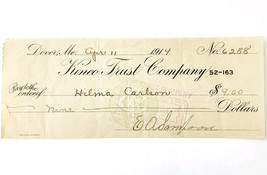 Dover, Me. Apr 11 1914 No. 6288
Kineo Trust Company 52-163
Pay to the
order of Hilma Carlson $9.00
Nine Dollars